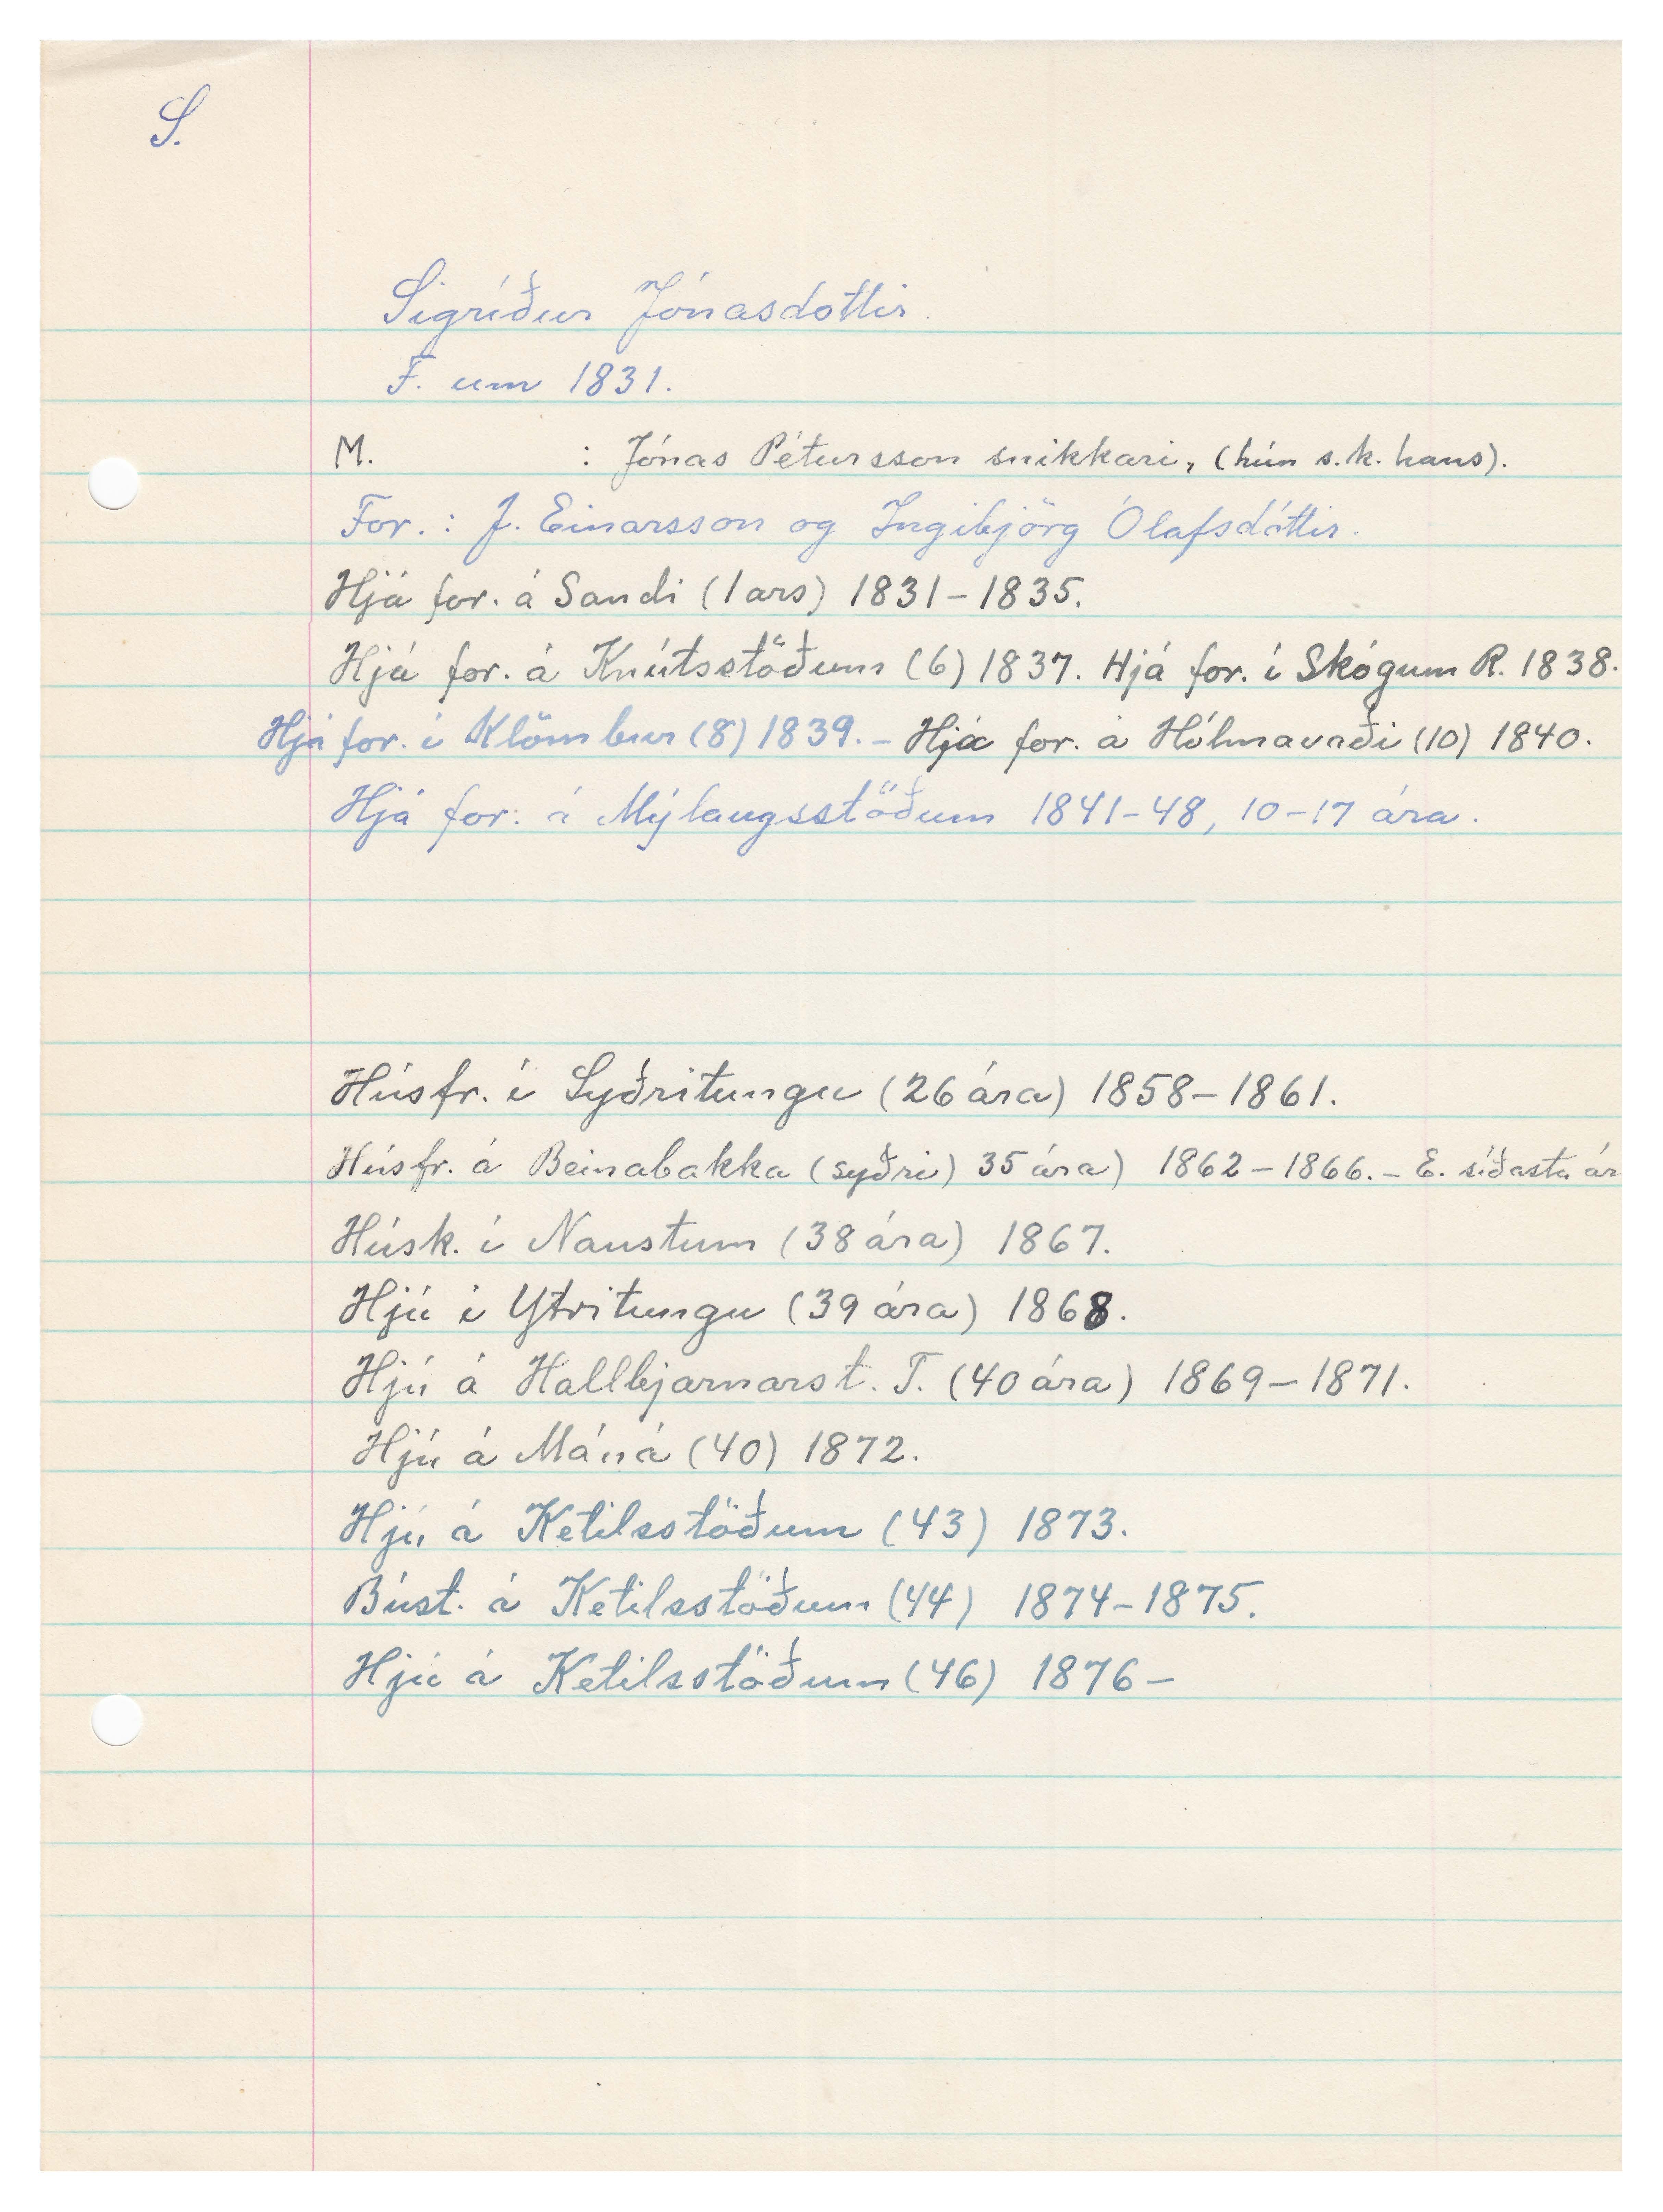 S.
Sigríður Jónasdóttir.
F. um 1831.
M. : Jónas Pétursson snikkari, (hún s.k. hans).
For. : J. Einarsson og Ingibjörg Ólafsdóttir.
Hjá for. á Sandi (1 ars) 1831-1835.
Hjá for. á Knútsstöðum (6) 1837. Hjá for. í Skógum R. 1838.
Hjá for. í Klömbur (8) 1839. - Hjá for. á Hólmavaði (10) 1840.
Hjá for. á Mýlaugsstöðum 1841-48, 10-17 ára.
Húsfr. í Syðritungu (26 ára) 1858-1861.
Húsfr. á Beinabakka (syðri) 35 ára) 1862-1866. - E. síðasta ár
Húsk. í Naustum (38 ára) 1867.
Hjú í Ytritungu (39 ára) 1868.
Hjú á Hallbjarnarst. T. (40 ára) 1869-1871.
Hjú á Máná (40) 1872.
Hjú á Ketilsstöðum (43) 1873.
Búst. á Ketilsstöðum (44) 1874-1875.
Hjú á Ketilsstöðum (46) 1876-